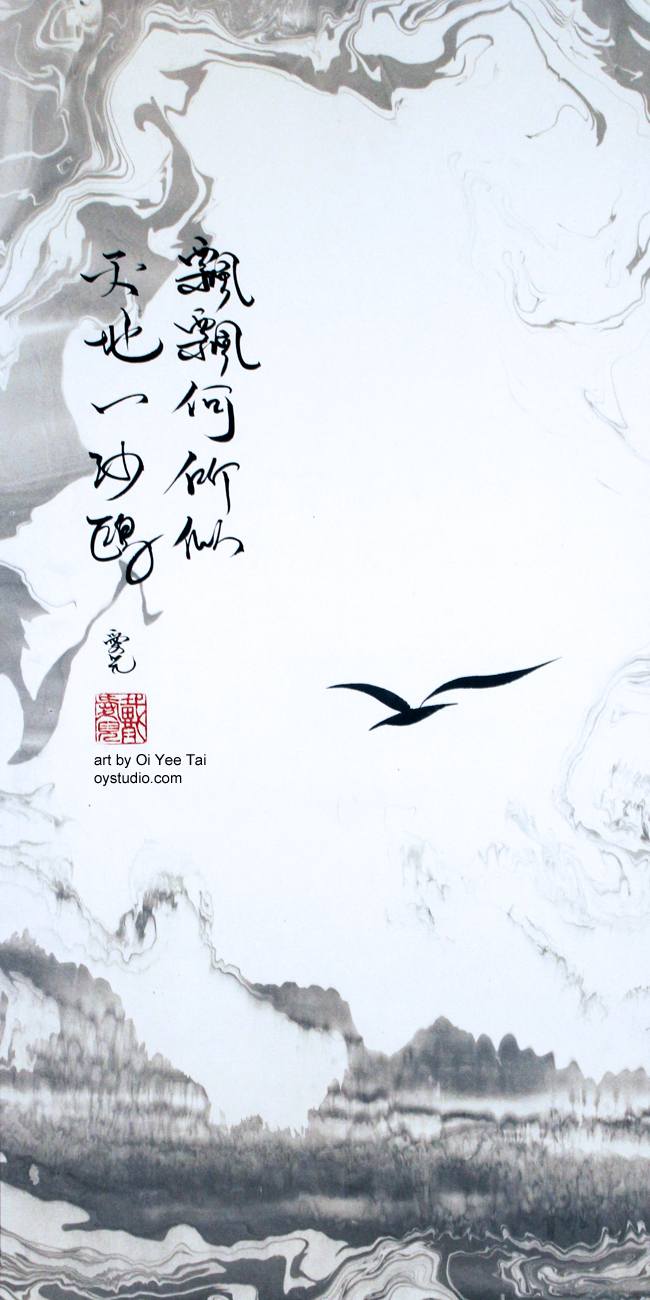 飄飄何所似
天地一沙鷗
art by Oi Yee Tai
oystudio.com